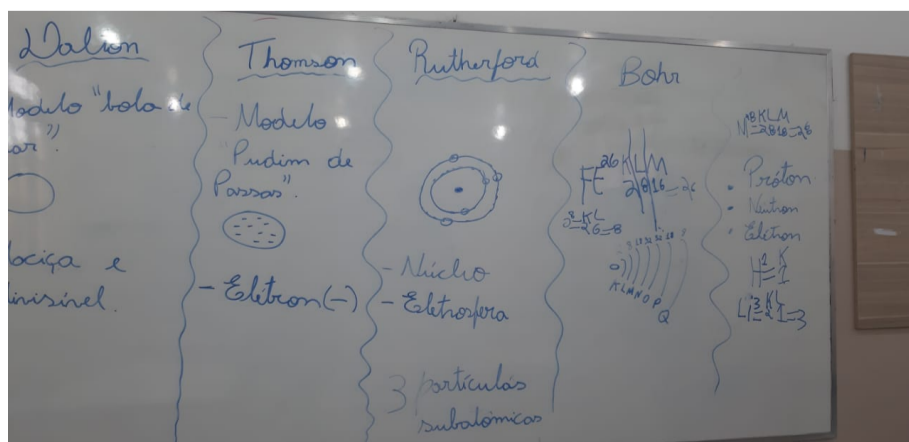 Dalton
Modelo "bola de
Maciça e
Thomson
- Modelo
Pudim de
Passas".
- Elétron (-)
Rutherford
- Núcleo
- Eletrosfera
3 partículas
subatômicas
Bohr
FE 26 K L M
2 8 16 = 26
K L
2 6 = 8
K L M N O P Q
K L M
2 8 18 = 28
• Próton
• Neutron
• Elétron
H 1 K
= 1
Li 3 K L
= 2 1 = 3